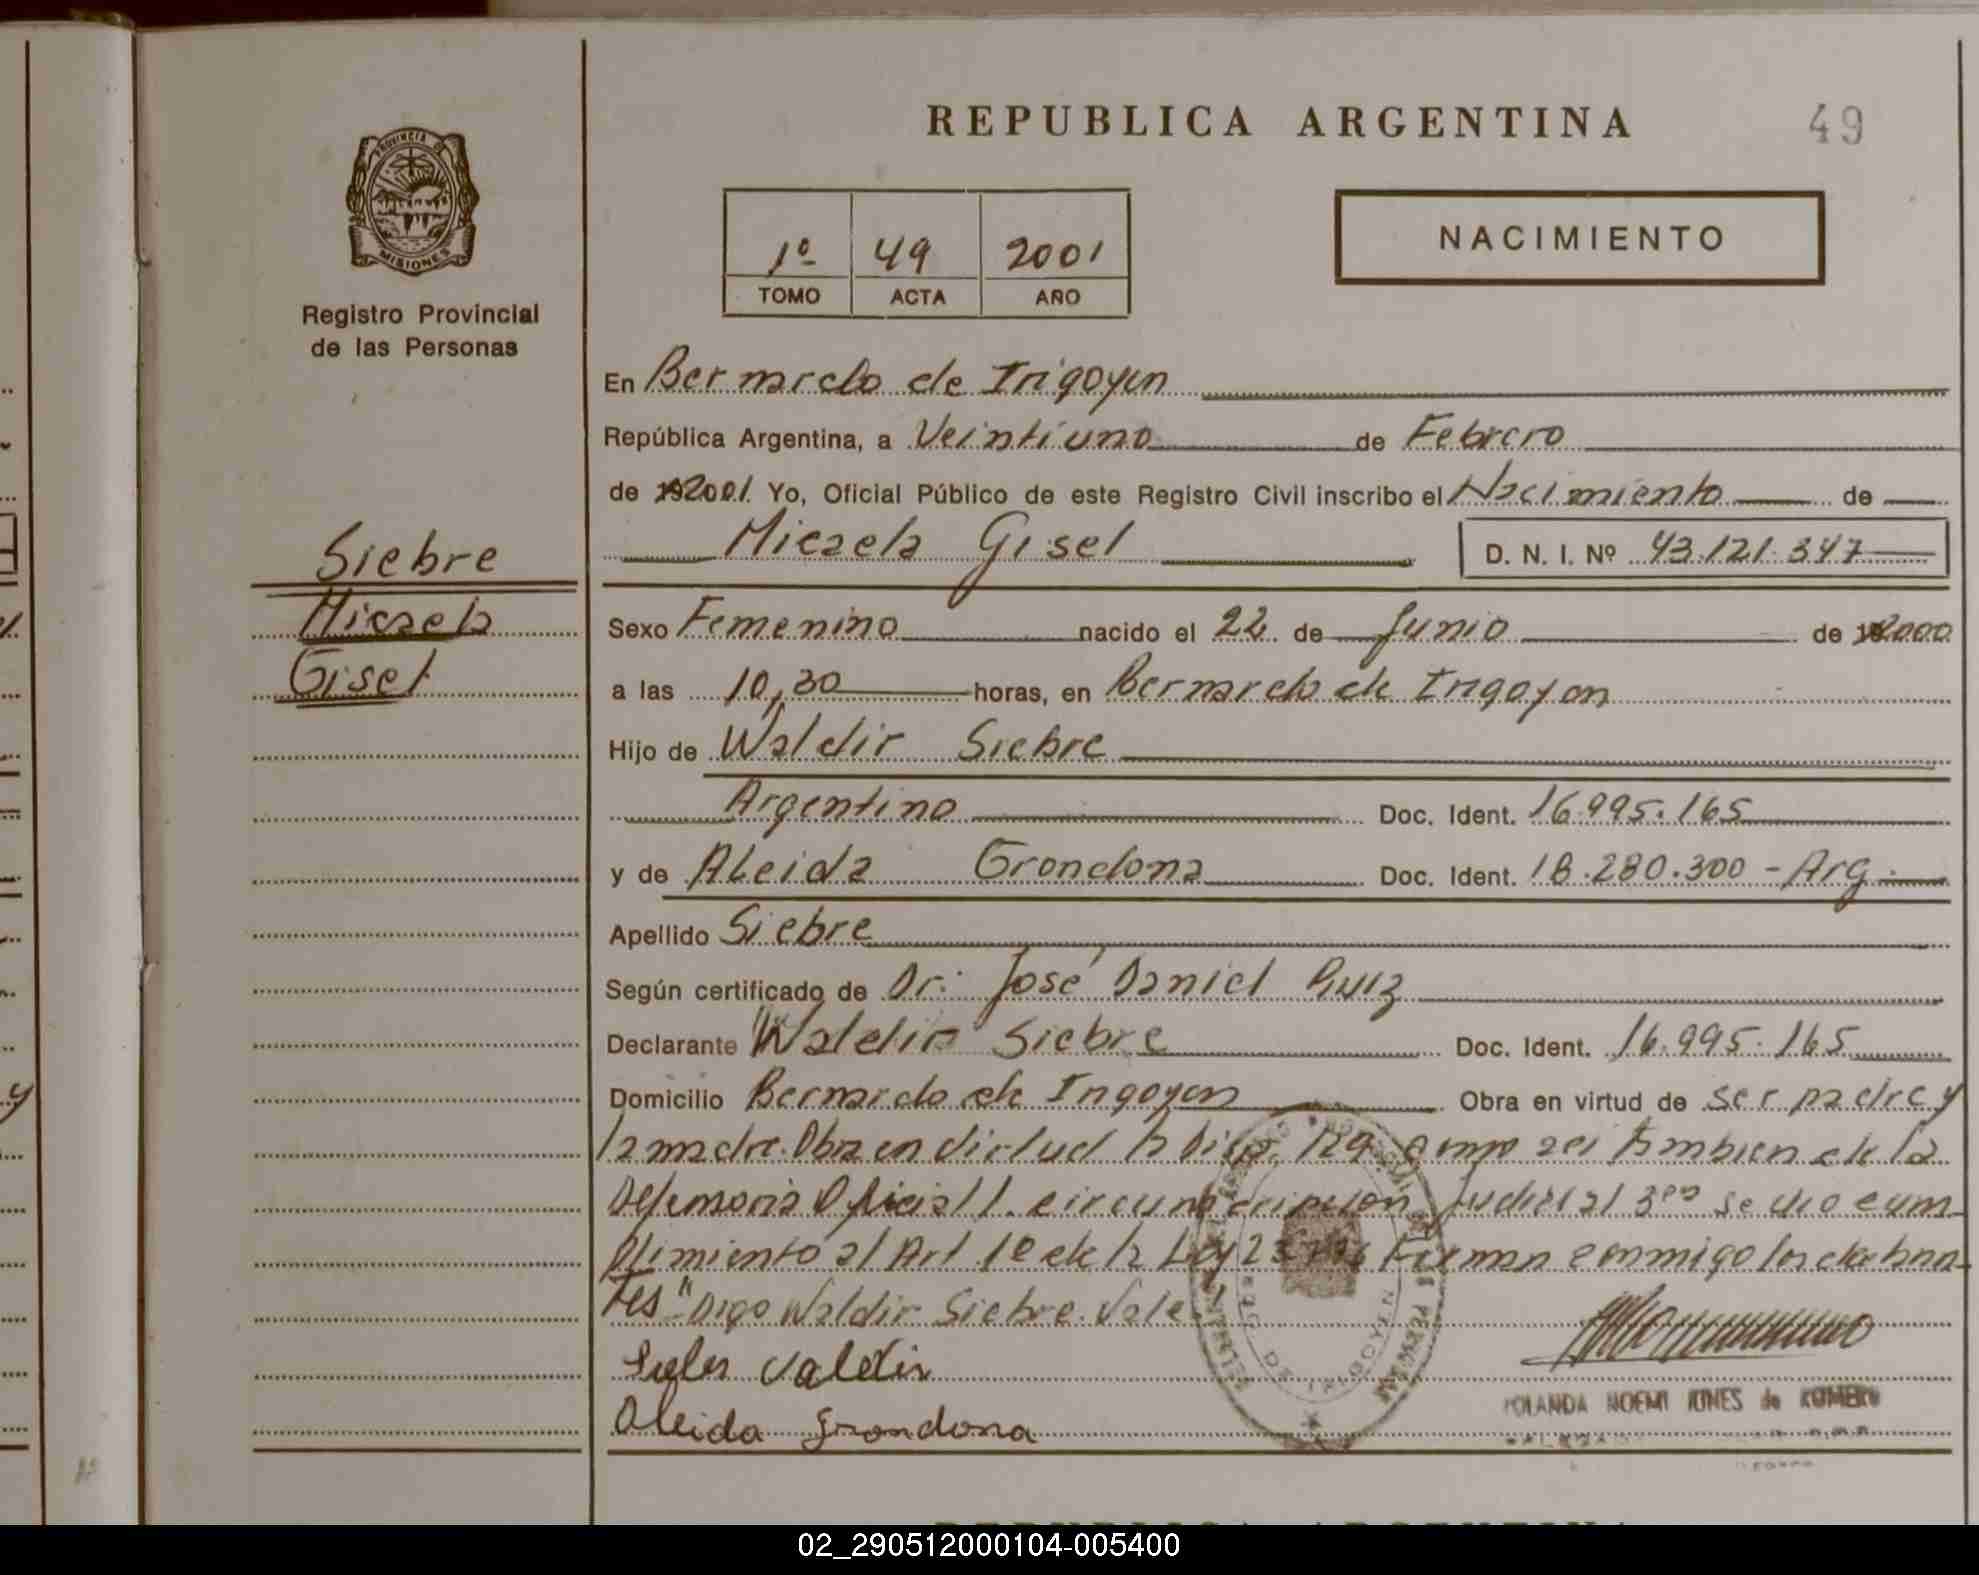 PROVINCIA DE
MISIONES
Registro Provincial
de las Personas
Siebre
Micaela
Gisel
REPUBLICA ARGENTINA
49
1º 49 2001
TOMO ACTA AÑO
NACIMIENTO
En Bernardo de Irigoyen
República Argentina, a Veintiuno de Febrero
de 2001. Yo, Oficial Público de este Registro Civil inscribo el Nacimiento de
Micaela Gisel D. N. I. Nº 43.121.347
Sexo Femenino nacido el 22 de Junio de 2000
a las 10,30 horas, en Bernardo de Irigoyen
Hijo de Waldir Siebre
Argentino Doc. Ident. 16.995.165
y de Aleida Grondona Doc. Ident. 18.280.300 - Arg.
Apellido Siebre
Según certificado de Dr: José Daniel Ruiz
Declarante Waldir Siebre Doc. Ident. 16.995.165
Domicilio Bernardo de Irigoyen Obra en virtud de ser padre y
la madre. Obra en virtud la Disp. 129 como asi tambien de la
Defensoria Oficial 1. circunscripcion Judicial 3ra se dio cum-
plimiento al Art. 1º de la Ley Firman conmigo los declaran-
tes "Digo Waldir Siebre. Vale"
Valdir
Aleida Grondona
YOLANDA NOEMI JONES de ROMERO
02_290512000104-005400